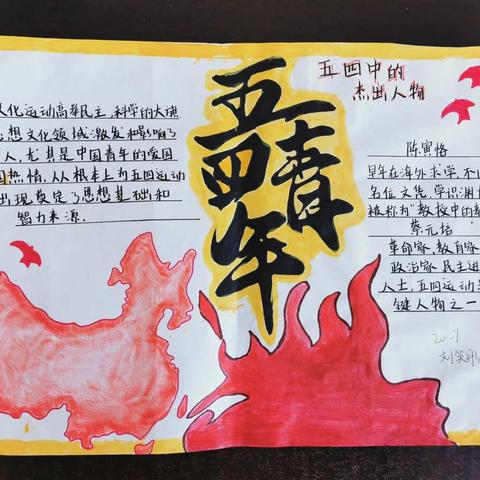 化运动高举民主,科学的大旗
思想文化领域激发和影响了
人,尤其是中国青年的爱国
国热情,从根本上为五四运动
出现奠定了思想基础和
智力来源.
五四青年
五四中的
杰出人物
陈寅恪
早年在海外求学,不
名位文凭,学识渊
被称为“教授中的教
蔡元培
革命家,教育家
政治家 民主进
人士,五四运动
键人物之一